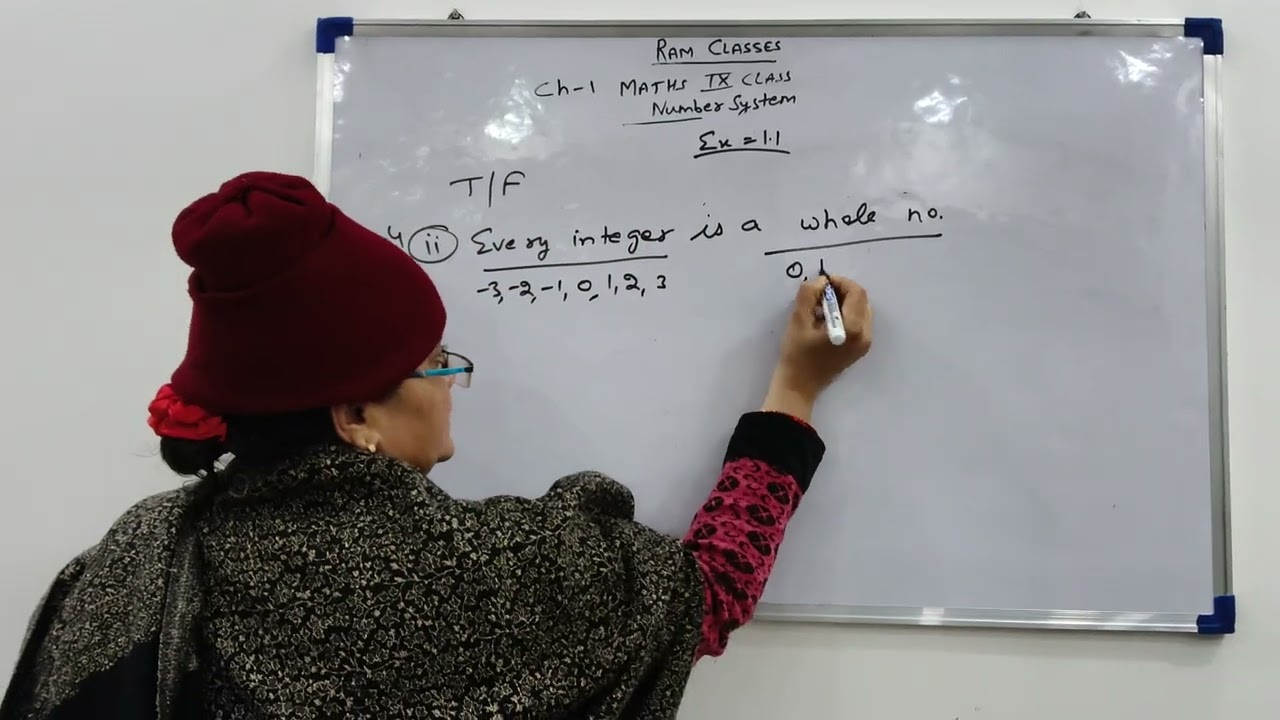 RAM CLASSES
Ch-1 MATHS IX CLASS
Number System
Ex = 1.1
T/F
4 (ii) Every integer is a whole no.
-3, -2, -1, 0, 1, 2, 3 0, 1